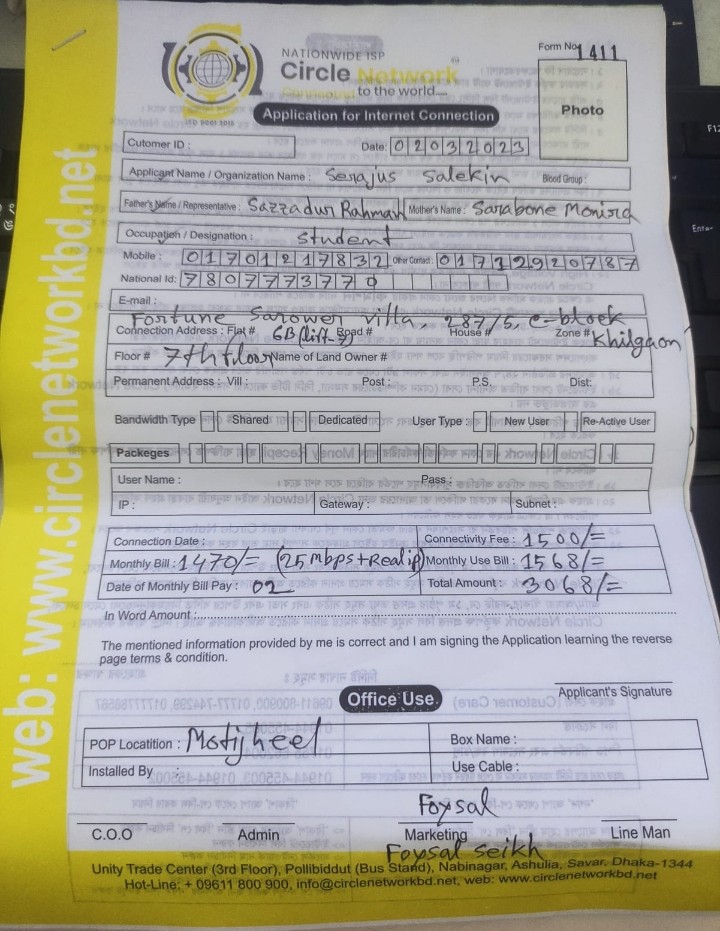 NATIONWIDE ISP
Form No 1411
Circle Network
Connecting to the world.....
ISO 9001:2015
Application for Internet Connection
Photo
Cutomer ID :
Date: 02032023
Applicant Name / Organization Name : Serajus Salekin Blood Group :
Father's Name / Representative : Sazzadur Rahman Mother's Name : Sarabone Monira
Occupation / Designation : student
Mobile : 01701217832 Other Contact : 017312920787
National Id: 7807773770
E-mail :
Fortune Sarower villa, 287/5, e-block
Connection Address : Flat# 6B (lift-7) Road # House # Zone # Khilgaon
Floor # 7th floor Name of Land Owner #
Permanent Address : Vill : Post : P.S. Dist:
Bandwidth Type Shared Dedicated User Type : New User Re-Active User
Packeges
User Name : Pass :
IP : Gateway : Subnet :
Connection Date : Connectivity Fee : 1500/=
Monthly Bill : 1470/= (25 mbps + Real ip) Monthly Use Bill : 1568/=
Date of Monthly Bill Pay : 02 Total Amount : 3068/=
In Word Amount :
The mentioned information provided by me is correct and I am signing the Application learning the reverse
page terms & condition.
Applicant's Signature
Office Use.
POP Locatition : Motijheel Box Name :
Installed By : Use Cable :
Foysal
C.O.O Admin Marketing Line Man
Foysal seikh
Unity Trade Center (3rd Floor), Pollibiddut (Bus Stand), Nabinagar, Ashulia, Savar, Dhaka-1344
Hot-Line: + 09611 800 900, info@circlenetworkbd.net, web: www.circlenetworkbd.net
web: www.circlenetworkbd.net
F12
Enter